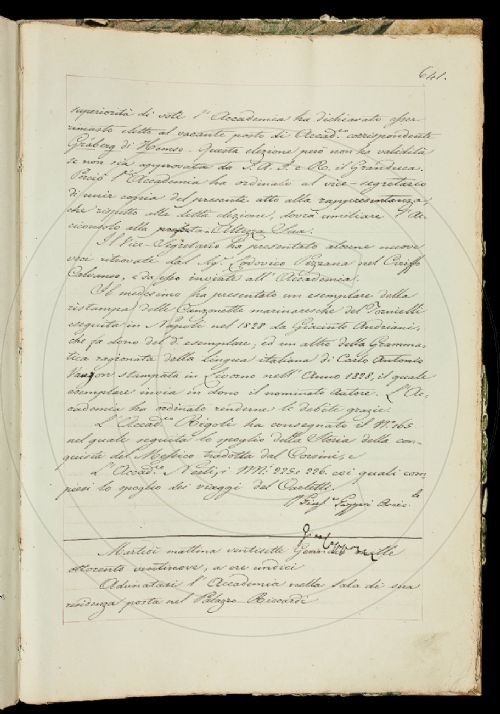 641.
superiorità di voti l'Accademia ha dichiarato esser
rimasto eletto al vacante posto di Accad.co corrispondente
Gràberg di Hemsò. Questa elezione però non ha validità
se non sia approvata da S. A. I. e R. il Granduca.
Perciò l'Accademia ha ordinato al vice-segretario
di unir copia del presente atto alla rappresentanza,
che rispetto alle detta elezione, dovrà umiliare l'Ar
ciconsolo alla Altezza Sua.
Il Vice-Segretario ha presentato alcune nuove
voci ritrovate dal Sig.r Lodovico Pezzana nel Ciriffo
Calvaneo, e da esso inviate all'Accademia.
Il medesimo ha presentato un esemplare della
ristampa delle Canzonette marinaresche del
eseguita in Napoli nel 1828 da Giacinto Andriani,
che fa dono del d.o esemplare; ed un altro della Gramma-
tica ragionata della lingua italiana di Carlo Antonio
Vanzon stampata in Livorno nell'Anno 1828, il quale
esemplare invia in dono il nominato Autore. L'Ac-
cademia ha ordinato renderne le debite grazie.
L'Accad.co Rigoli ha consegnato il N.o 165
nel quale seguita lo spoglio della Storia della con-
quista del Messico tradotta dal Corsini; e
L'Accad.co Nesti, i NN.i 225 e 226. coi quali com
piesi lo spoglio dei viaggi del Carletti.

Martedì mattina ventisette Gennaio mille
ottocento ventinove, a ore undici
Adunatasi l'Accademia nella Sala di sua
residenza posta nel Palazzo Riccardi